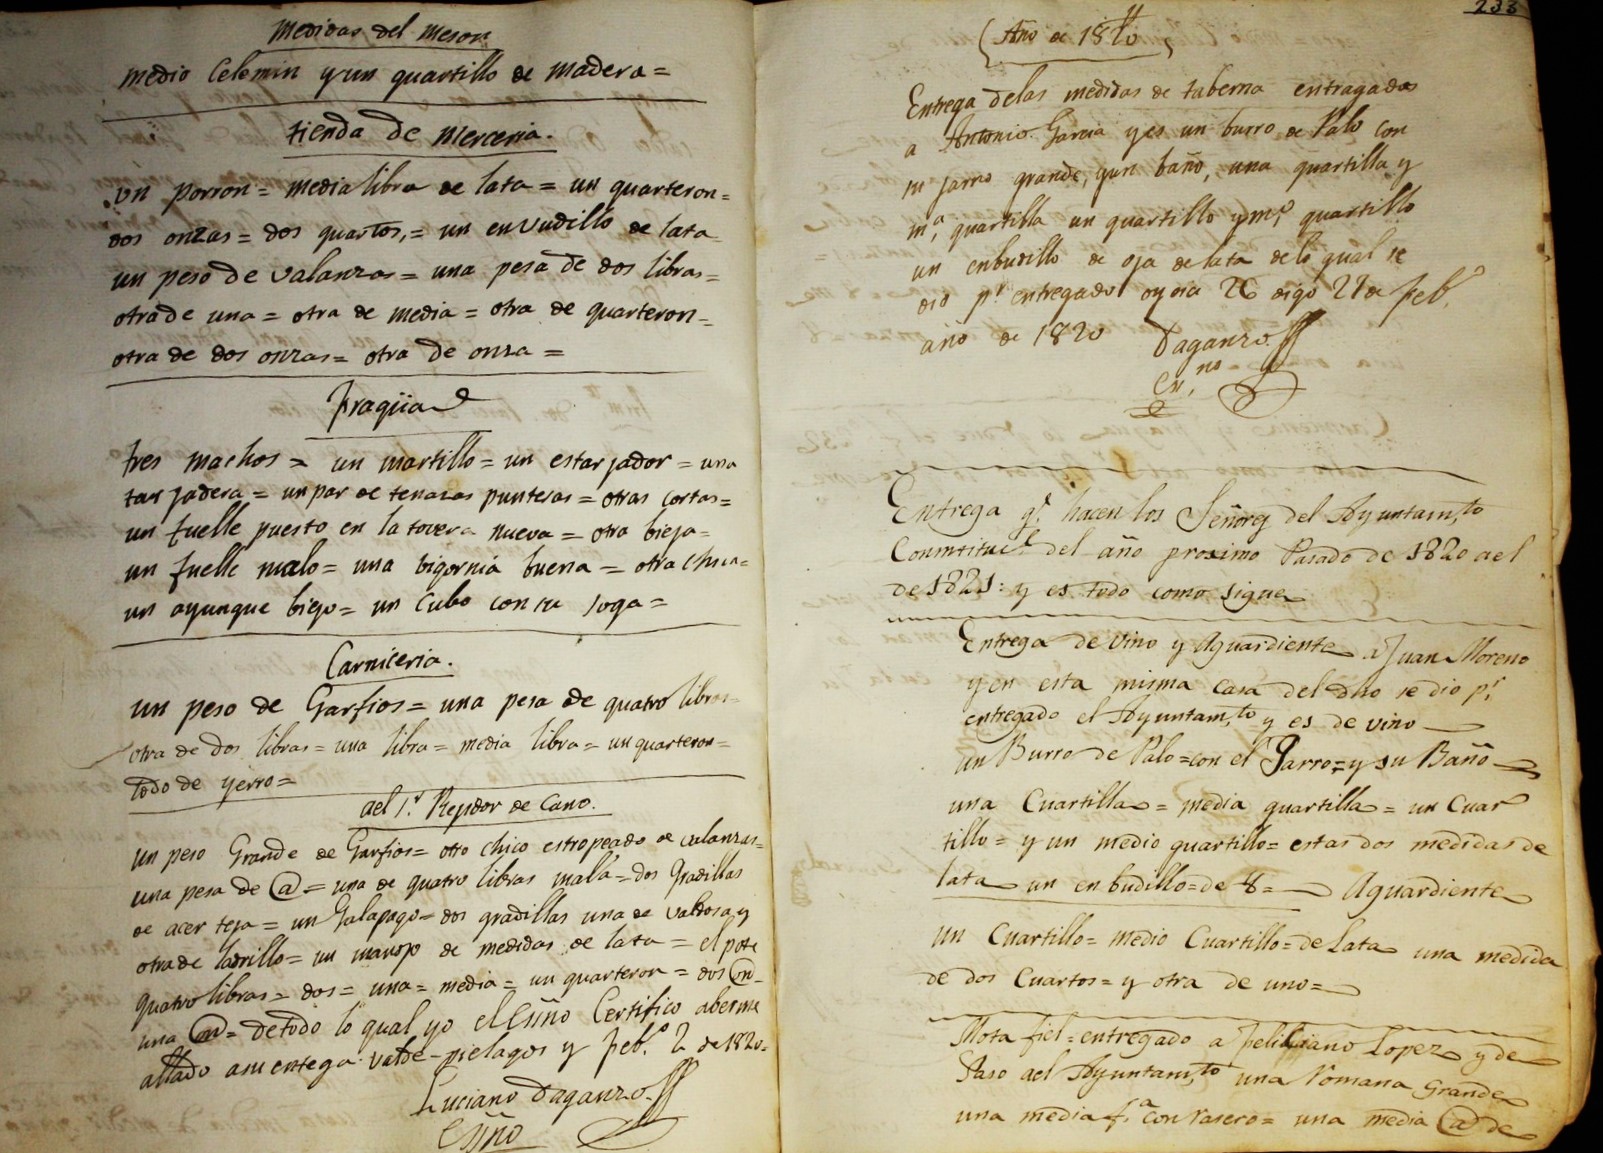 Medidas del Meson
medio Celemin y un quartillo de madera =
tienda de Merceria.
un porron = media libra de lata = un quarteron =
dos onzas = dos quartos, = un envudillo de lata
un peso de valanzas = una pesa de dos libras =
otra de una = otra de media = otra de quarteron =
otra de dos onzas = otra de onza =
fragüa
tres machos = un martillo = un estarjador = una
tarjadera = un par de tenazas punteras = otras cortas =
un fuelle puesto en la tovera nueva = otra bieja =
un fuelle malo = una bigornia buena = otra chica =
un ayunque biejo = un Cubo con su soga =
Carniceria.
un peso de Garfios = una pesa de quatro libras
otra de dos libras = una libra = media libra = un quarteron =
todo de yerro =
ael 1.r Rejidor de Cano.
un peso Grande de Garfios = otro chico estropeado de valanzas =
una pesa de @ = una de quatro libras mala = dos Gradillas
de acer teja = un Galapago = dos gradillas una de valdosa, y
otra de ladrillo = un manojo de medidas de lata = el pote
quatro libras = dos = una = media = un quarteron = dos on =
una on = de todo lo qual yo el Essño Certifico aberme
allado a su entega. valde-pielagos y feb.o 2 de 1820 =
Luciano Daganzo
Essño
233
Año de 1820
Entrega delas medidas de taberna entragadas
a Antonio Garcia y es un burro de Palo con
su jarro grande, y un baño, una quartilla y
m.a quartilla un quartillo y m.o quartillo
un enbudillo de oja de lata de lo qual se
dio p.r entregado oy dia 26 digo 27 de feb.o
año de 1820 Daganzo
Es.no
Entrega q.e hacen los Señores del Ayuntam.to
Conmtituc.l del año proximo Pasado de 1820 ael
de 1821: y es todo como sigue
Entrega de vino y Aguardiente a Juan Moreno
y en esta misma casa del dho se dio p.r
entregado el Ayuntam.to y es de vino
un Burro de Palo = con el Jarro = y su Baño
una Cuartilla = media quartilla = un Cuar
tillo = y un medio quartillo = estas dos medidas de
lata un enbudillo = de 8 = Aguardiente
un Cuartillo = medio Cuartillo = de Lata una medida
de dos Cuartos = y otra de uno =
Mota fiel = entregado a feliciano Lopez y de
Paso ael Ayuntam.to una Romana Grande
una media f.a con Rasero = una media @ de